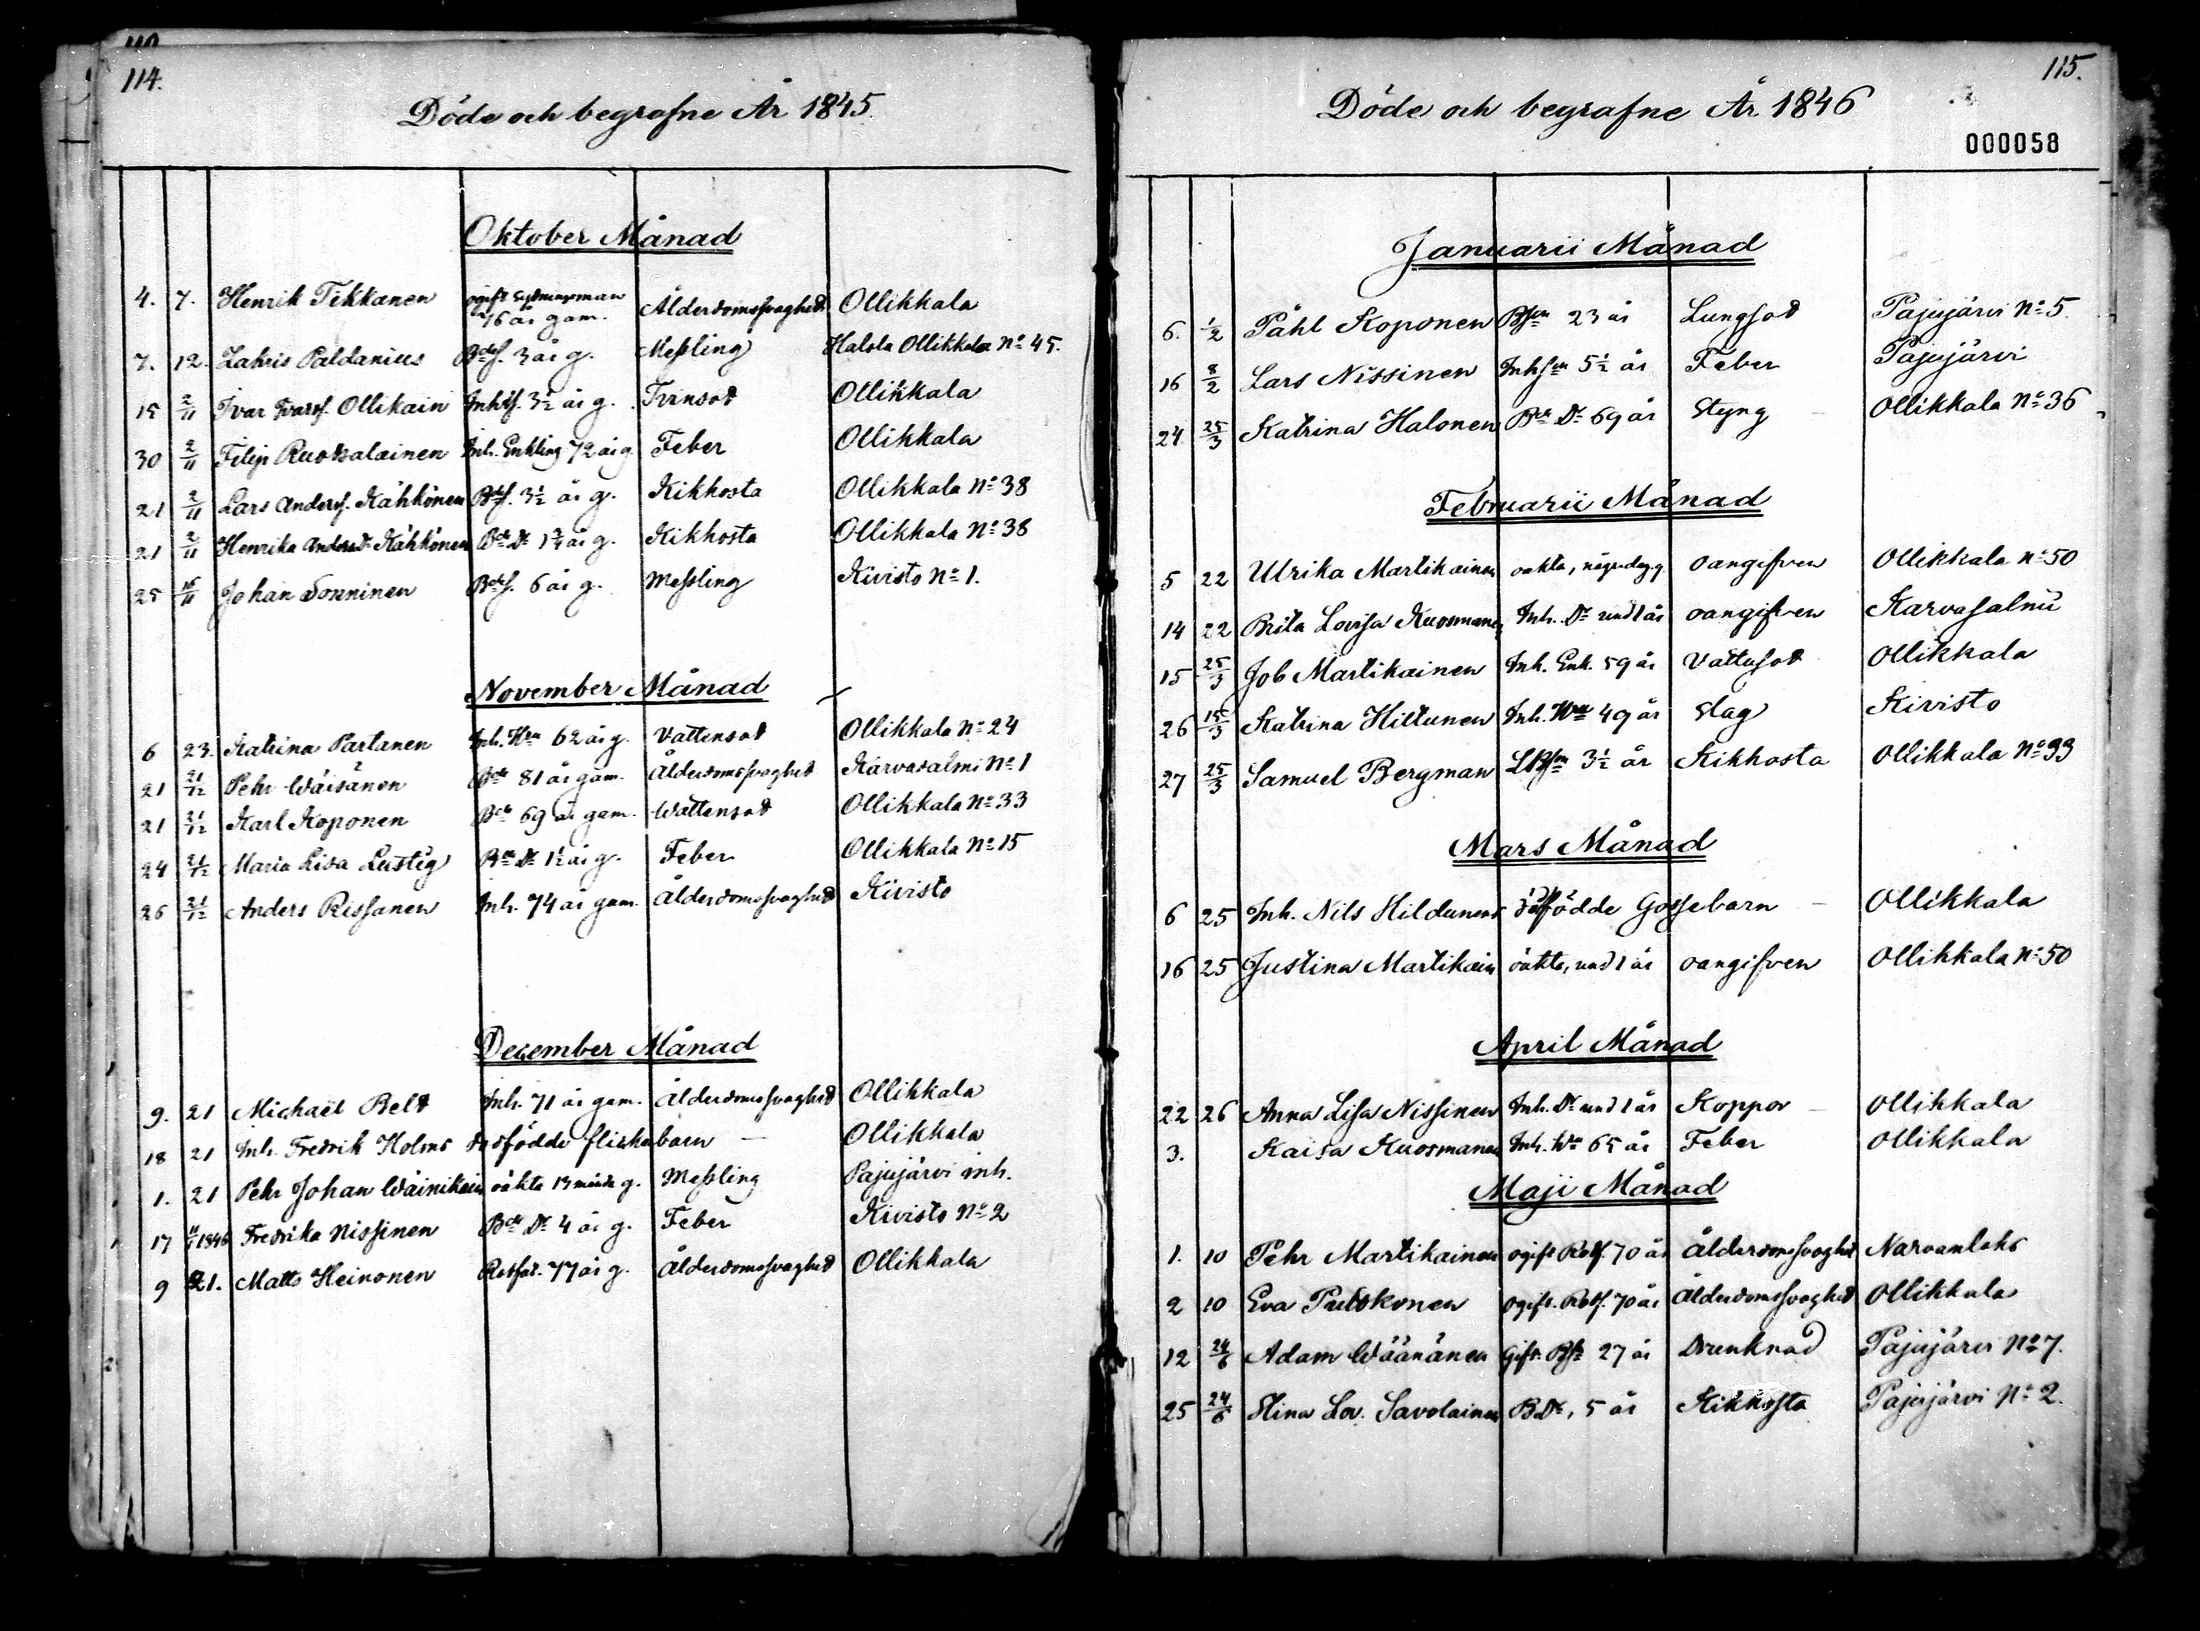 114.
Döde och begrafne År 1845.
Oktober Månad
4. 7. Henrik Tikkanen ogift 76 år gam. Ålderdomssvaghet Ollikkala
7. 12. Zakris Paldanius Bdes. 3 år g. Messling Halola Ollikkala No 45.
15 2/11 Ivar Ivarsf. Ollikain Inhsf. 3½ år g. Tvinsot Ollikkala
30 2/11 Filip Ruotsalainen Inh. Enkling 72 år g. Feber Ollikkala
21 2/11 Lars Andersf. Kähkönen Bdesf. 3½ år g. Kikhosta Ollikkala No 38
21 2/11 Henrika Anders Dr Kähkönen Bde Dr 1¾ år g. Kikhosta Ollikkala No 38
25 16/11 Johan Sonninen Bdes. 6 år g. Messling Kivisto No 1.
November Månad
6 23. Katrina Partanen Inh. Hru 62 år g. Vattensot Ollikkala No 24
21 21/12 Pehr Wäisänen Bde 81 år gam. Ålderdomssvaghet Karvasalmi No 1
21 21/12 Karl Koponen Bde 69 år gam. Wattensot Ollikkala No 33
24 21/12 Maria Lisa Lustig Bde Dr 1½ år g. Feber Ollikkala No 15
26 21/12 Anders Rissanen Inh. 74 år gam. Ålderdomssvaghet Kivisto
December Månad
9. 21 Michaël Belt Inh. 71 år gam. Ålderdomssvaghet Ollikkala
18 21 Inh. Fredrik Holms dödfödde flickebarn — Ollikkala
1. 21 Pehr Johan Wäinikain oäkta 13 månde g. Messling Pajujärvi inh.
17 1846 Fredrika Nissinen Bde Dr 4 år g. Feber Kivisto No 2
9 21. Matts Heinonen Rotfat. 77 år g. Ålderdomssvaghet Ollikkala
115.
Döde och begrafne År 1846
000058
Januarii Månad
6. 1/2 Påhl Koponen Bson 23 år Lungsot Pajujärvi No 5.
16 8/2 Lars Nissinen Inhson 5½ år Feber Pajujärvi
24 25/3 Katrina Halonen Bde Dr 69 år Styng — Ollikkala No 36
Februarii Månad
5 22 Ulrika Martikainen oäkta, någr. dag g. oangifven Ollikkala No 50
14 22 Brita Lovisa Kuosmanen Inh. Dr und 1 år oangifven Karvasalmi
15 25/3 Job Martikainen Inh. Enk. 59 år Vattusot Ollikkala
26 15/3 Katrina Hiltunen Inh. Hru 49 år Slag Kivisto
27 25/3 Samuel Bergman LBson 3½ år Kikhosta Ollikkala No 33
Mars Månad
6 25 Inh. Nils Hildunens dödfödde Gossebarn — Ollikkala
16 25 Justina Martikain oäkta, und 1 år oangifven Ollikkala No 50
April Månad
22 26 Anna Lisa Nissinen Inh. Dr und 1 år Koppor — Ollikkala
3. Kaisa Kuosmanen Inh. Wa 65 år Feber Ollikkala
Maji Månad
1. 10 Pehr Martikainen ogift Rotf. 70 år Ålderdomssvaghet Narvanlaks
2 10 Eva Pulskonen ogift. Rotf. 70 år Ålderdomssvaghet Ollikkala
12 24/6 Adam Wäänänen Gift. Bson 27 år Drunknad Pajujärvi No 7.
25 24/6 Stina Lov. Savolainen B.Dr, 5 år Kikhosta Pajujärvi No 2.